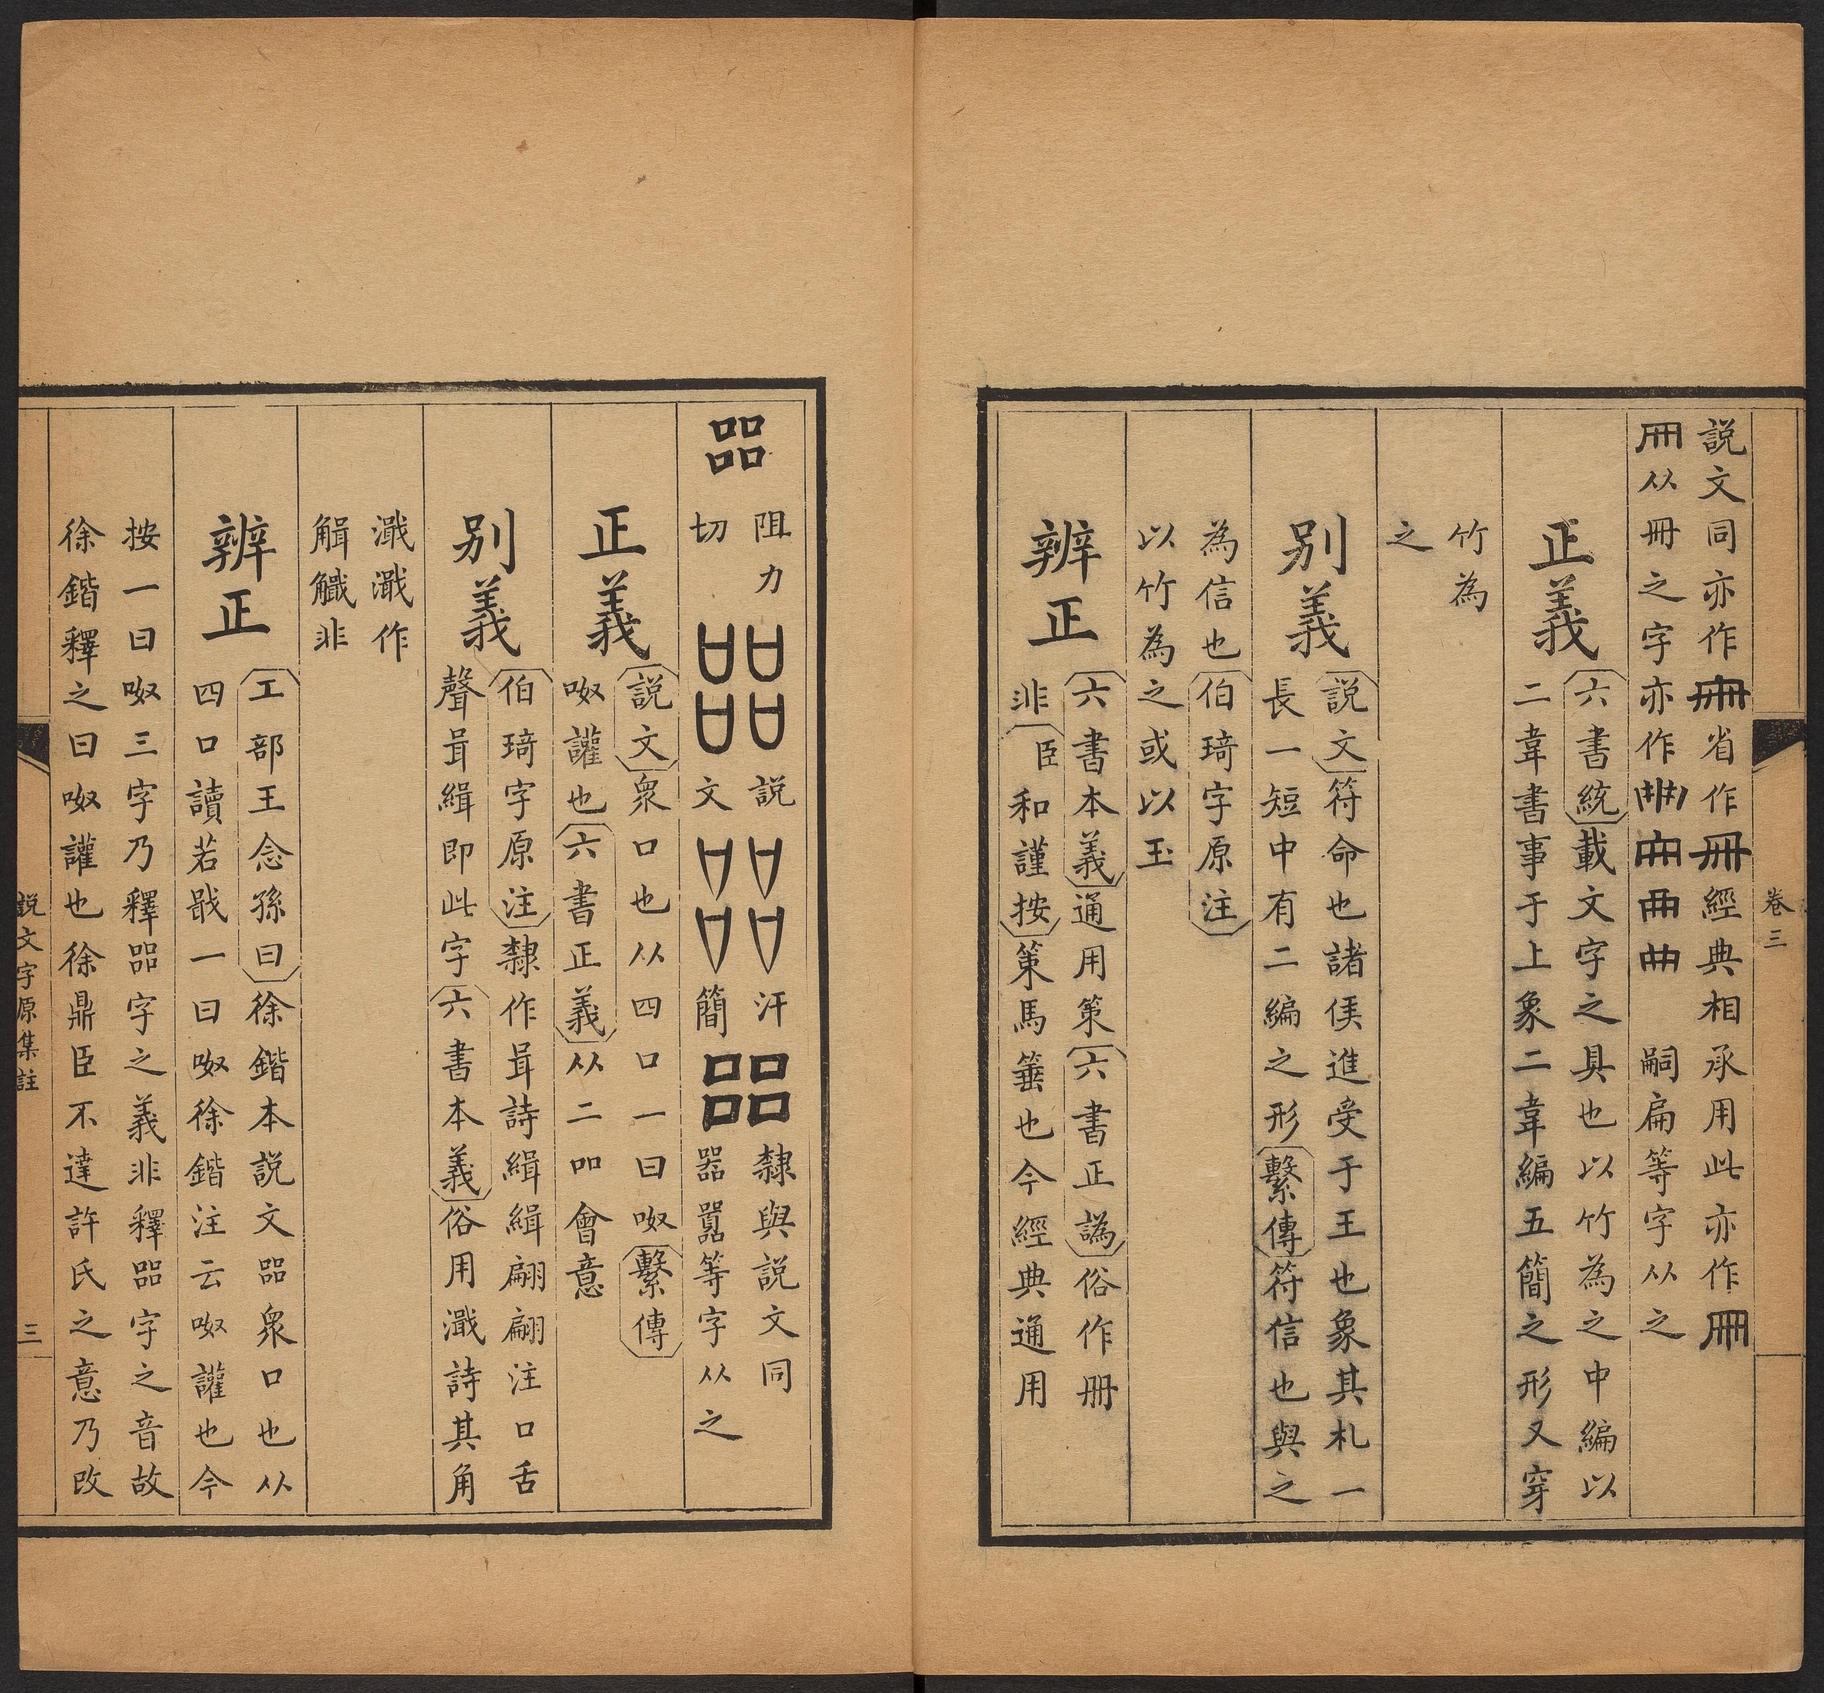 卷三
説文同亦作𠕋省作𠕁經典相承用此亦作冊
𠕁从冊之字亦作冊 嗣扁等字从之
正義
六書統載文字之具也以竹為之中編以
二韋書事于上象二韋編五簡之形又穿
竹為
之
别義
説文符命也諸侯進受于王也象其札一
長一短中有二編之形繫傳符信也與之
為信也伯琦字原注
以竹為之或以玉
辨正
六書本義通用策六書正譌俗作册
非臣和謹按策馬箠也今經典通用
㗊
阻力
切
説
文
汗
簡
隸與説文同
器嚚等字从之
正義
説文衆口也从四口一曰呶繫傳
呶讙也六書正義从二吅會意
别義
伯琦字原注隸作咠詩緝緝翩翩注口舌
聲咠緝即此字六書本義俗用濈詩其角
濈濈作
觠觠非
辨正
工部王念孫曰徐鍇本説文㗊衆口也从
四口讀若戢一曰呶徐鍇注云呶讙也今
按一曰呶三字乃釋㗊字之義非釋㗊字之音故
徐鍇釋之曰呶讙也徐鼎臣不達許氏之意乃改
説文字原集註
三